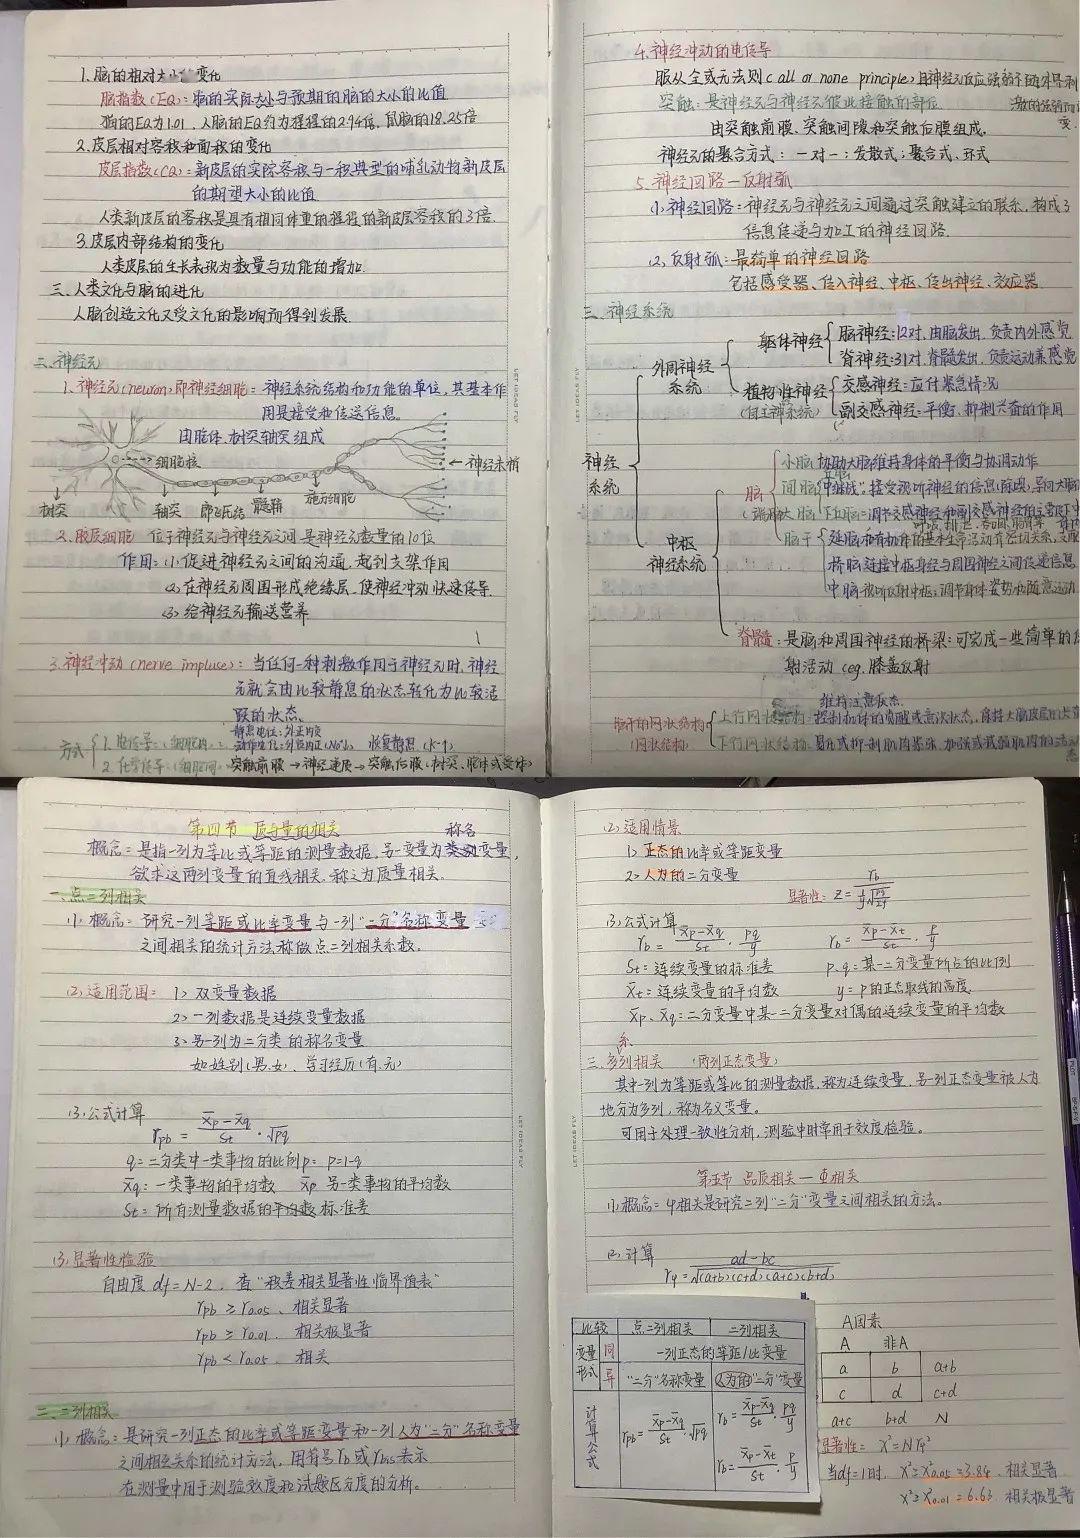 1.脑的相对大小变化
脑指数(EQ):脑的实际大小与预期的脑的大小的比值
猫的EQ为1.01.人脑的EQ约为猩猩的2.94倍.鼠脑的18.25倍
2.皮层相对容积和面积的变化
皮层指数(CQ):新皮层的实际容积与一种典型的哺乳动物新皮层
的期望大小的比值
人类新皮层的容积是具有相同体重的猩猩的新皮层容积的3倍.
3.皮层内部结构的变化
人类皮层的生长表现为数量与功能的增加.
三.人类文化与脑的进化
人脑创造文化又受文化的影响而得到发展.
二.神经元
1.神经元(neuron)即神经细胞:神经系统结构和功能的单位,其基本作
用是接受和传送信息.
由胞体.树突.轴突组成
细胞核
神经末梢
树突 轴突 郎飞氏结 髓鞘 施万细胞
2.胶质细胞 位于神经元与神经元之间是神经元数量的10倍
作用:(1)促进神经元之间的沟通,起到支架作用
(2)在神经元周围形成绝缘层,使神经冲动快速传导.
(3)给神经元输送营养
3.神经冲动(nerve impluse):当任何一种刺激作用于神经元时.神经
元就会由比较静息的状态转化为比较活
跃的状态.
静息电位:外正内负
方式 1.电传导:(细胞内): 动作电位:外负内正(Na+) 恢复静息(K+)
2.化学传导:(细胞间) 突触前膜→神经递质→突触后膜(树突、胞体或受体)
4.神经冲动的电传导
服从全或无法则(all or none principle)且神经元反应强弱不随外界刺
激的强弱而改
变.
突触:是神经元与神经元彼此接触的部位.
由突触前膜、突触间隙和突触后膜组成.
神经元的聚合方式:一对一;发散式;聚合式、环式
5.神经回路—反射弧
(1)神经回路:神经元与神经元之间通过突触建立的联系,构成了
信息传递与加工的神经回路.
(2)反射弧:最简单的神经回路
包括感受器、传入神经、中枢、传出神经、效应器.
三.神经系统
神经系统
外周神经系统
躯体神经 脑神经:12对,由脑发出,负责内外感觉
脊神经:31对.脊髓发出,负责运动兼感觉
植物性神经(自主神经系统) 交感神经:应付紧急情况
副交感神经:平衡.抑制兴奋的作用
中枢神经系统
脑 小脑 协助大脑维持身体的平衡与协调动作
间脑 "中继站".接受视听神经的信息
大脑 下丘脑:调节交感神经和副交感神经的主要
脑干 延脑:和有机体的基本生命活动有密切关系,支配
桥脑:连接中枢身经与周围神经之间传递信息
中脑:视听反射中枢;调节身体姿势和随意运动
脊髓:是脑和周围神经的桥梁:可完成一些简单的反
射活动 (eg.膝盖反射
维持注意状态.
脑干的网状结构 上行网状结构:控制机体的觉醒或意识状态,保持大脑皮层的
(网状结构) 下行网状结构:易化或抑制肌肉紧张.加强或减弱肌肉的活动
态
第四节 质与量的相关 称名
概念:是指一列为等比或等距的测量数据.另一变量为类别变量,
欲求这两列变量的直线相关.称之为质量相关.
一.点二列相关
(1)概念:研究一列等距或比率变量与一列"二分"名称变量
之间相关的统计方法.称做点二列相关系数.
(2)适用范围:1>双变量数据
2>一列数据是连续变量数据
3>另一列为二分类的称名变量
如性别(男.女)、学习经历(有.无)
(3)公式计算
rpb = X̄p-X̄q / St · √pq
q=二分类中一类事物的比例p: p=1-q
X̄q:一类事物的平均数 X̄p 另一类事物的平均数
St=所有测量数据的平均数 标准差
(3)显著性检验
自由度 df=N-2. 查"积差相关显著性临界值表"
rpb ≥ r0.05、相关显著
rpb ≥ r0.01. 相关极显著
rpb < r0.05. 相关
二.二列相关
(1)概念:是研究一列正态的比率或等距变量和一列人为"二分"名称变量
之间相互关系的统计方法,用符号rb或rbis表示
在测量中用于测验效度和试题区分度的分析。
(2)适用情景
1>正态的比率或等距变量
2>人为的二分变量
显著性: Z= rb / 1/y √pq/N
(3)公式计算
rb = X̄p-X̄q / St · pq / y rb = X̄p-X̄t / St · p / y
St=连续变量的标准差 p.q=某一二分变量所占的比例
X̄t=连续变量的平均数 y=P的正态取线的高度
X̄p、X̄q=二分变量中某一二分变量对偶的连续变量的平均数
系
三.多列相关 (两列正态变量)
其中一列为等距或等比的测量数据.称为连续变量.另一列正态变量被人为
地分为多列,称为名义变量。
可用于处理一致性分析,测验中时常用于效度检验。
第五节 品质相关—Φ相关
(1)概念:Φ相关是研究二列"二分"变量之间相关的方法。
(2)计算
rφ= ad-bc / √(a+b)(c+d)(a+c)(b+d)
比较 点二列相关 二列相关
变量形式 同 一列正态的等距/比变量
异 "二分"名称变量 人为的"二分"变量
计算公式 rpb= X̄p-X̄q / St · √pq rb= X̄p-X̄q / St · pq / y
rb= X̄p-X̄t / St · p / y
A因素
A 非A
a b a+b
c d c+d
a+c b+d N
显著性: X²=Nrφ²
当df=1时, X²≥X²0.05=3.84.相关显著
X²≥X²0.01=6.63 相关极显著